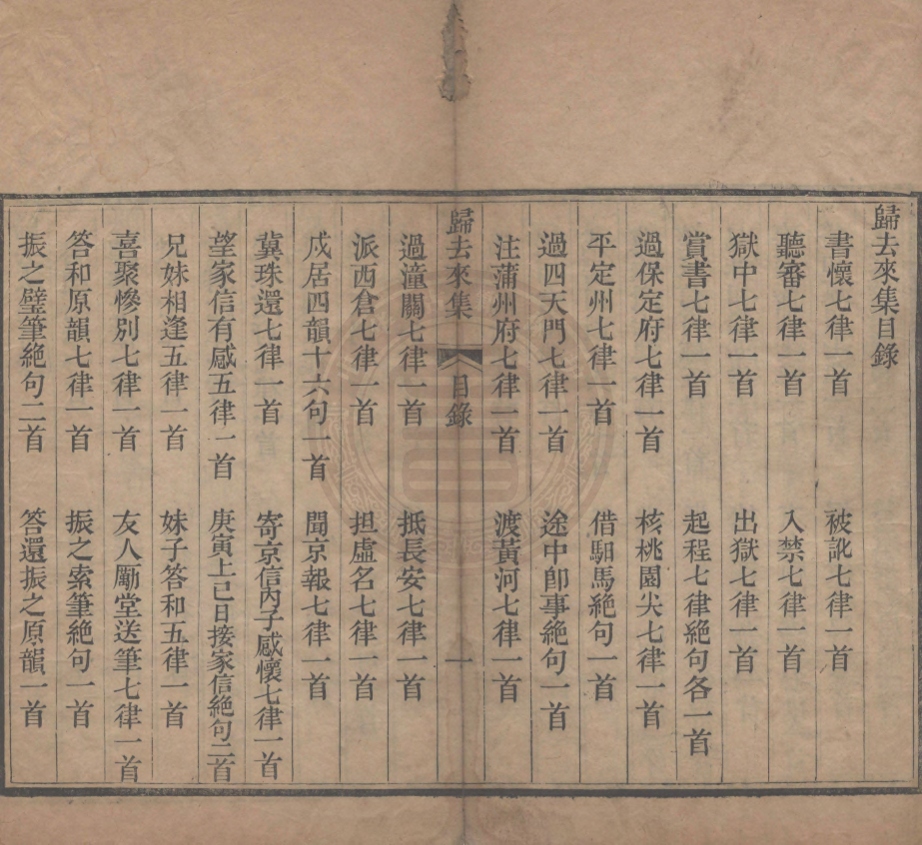 歸去來集目錄
書懷七律一首　被訛七律一首
聽審七律一首　入禁七律一首
獄中七律一首　出獄七律一首
賞書七律一首　起程七律絕句各一首
過保定府七律一首　核桃園尖七律一首
平定州七律一首　借馹馬絕句一首
過四天門七律一首　途中卽事絕句一首
注蒲州府七律一首　渡黃河七律一首
歸去來集　目錄　一
過潼關七律一首　抵長安七律一首
派西倉七律一首　担虛名七律一首
戍居四韻十六句一首　聞京報七律一首
冀珠還七律一首　寄京信內子感懷七律一首
望家信有感五律一首　庚寅上巳日接家信絕句二首
兄妹相逢五律一首　妹子答和五律一首
喜聚慘別七律一首　友人勵堂送筆七律一首
答和原韻七律一首　振之索筆絕句一首
振之璧筆絕句二首　答還振之原韻一首